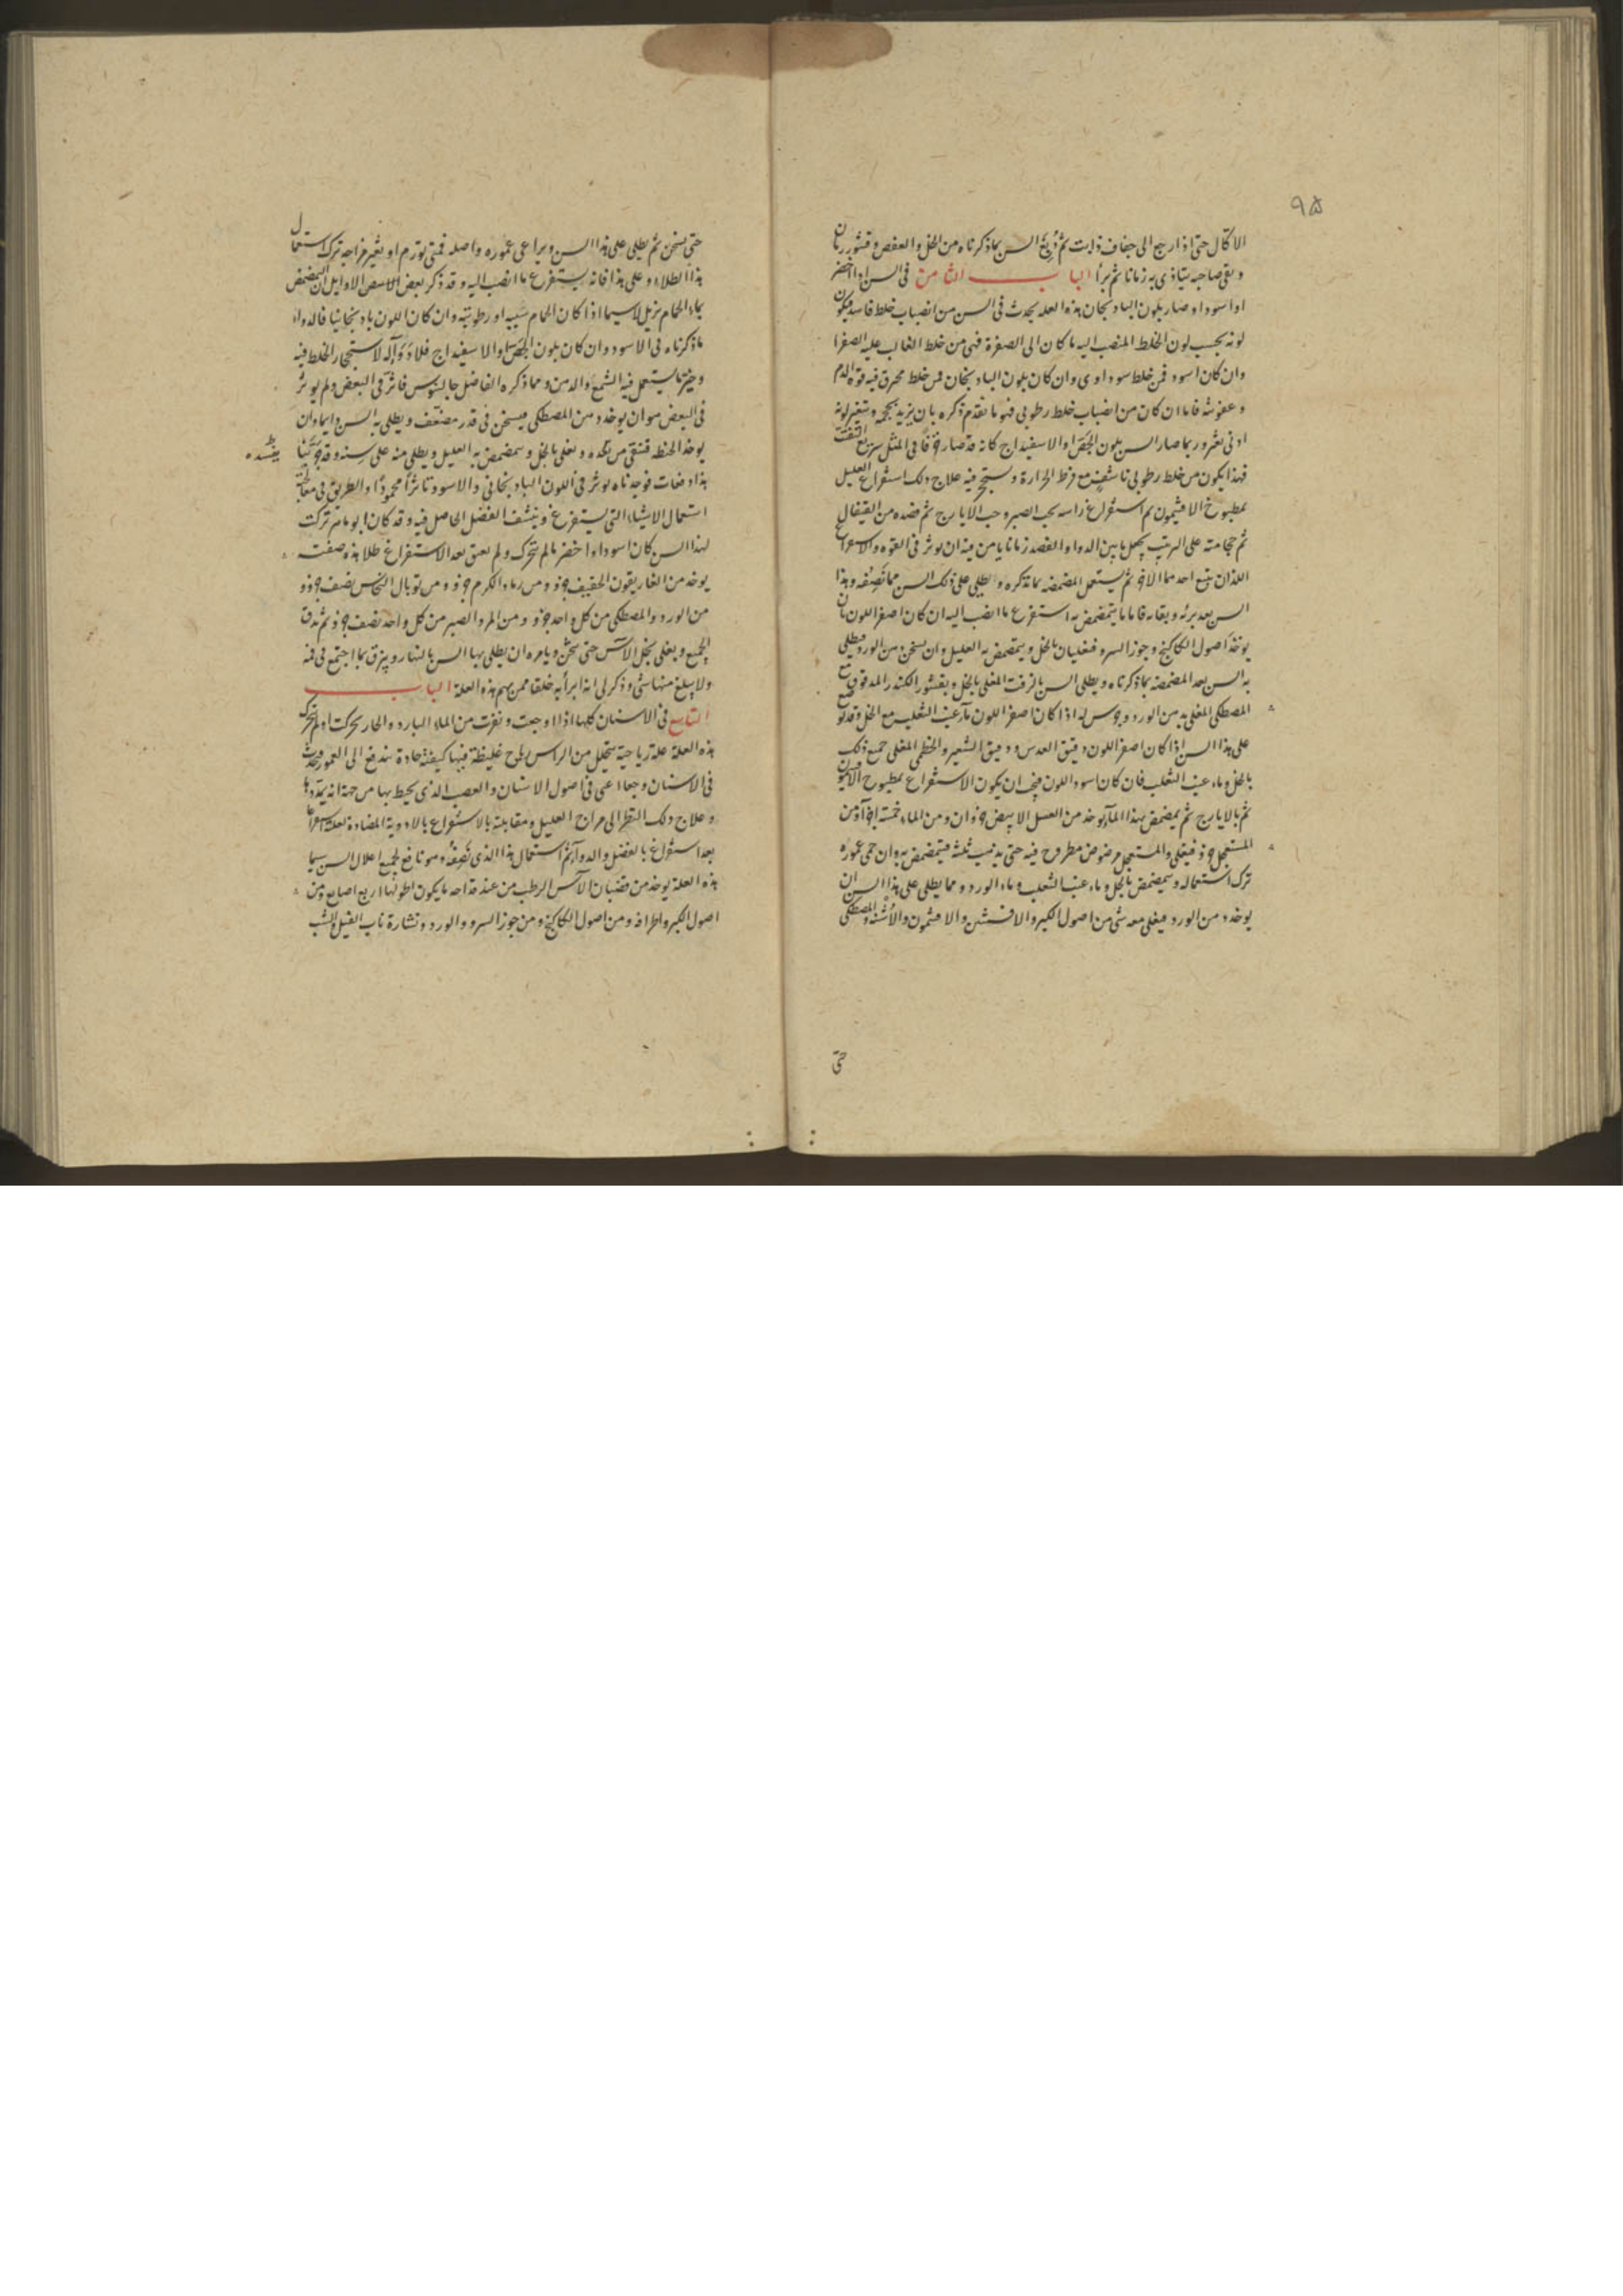 ٩٥
الاكال حتى اذا رجع الى جفاف ذابت ثم دُبغ السن بما ذكرناه من الخل والعفص وقشور رمان
وبقى صاحبه يتاذى به زمانا ثم برأ الباب الثامن فى السن اذا اخضر
او اسود او صار بلون البادنجان هذه العله يحدث فى السن من انصباب خلط فاسد فيكون
لونه بحسب لون الخلط المنصب اليه ما كان الى الصفرة فهى من خلط الغالب عليه الصفرا
وان كان اسود فمن خلط سوداوى وان كان بلون البادنجان فمن خلط محرق فيه قوة الدم
وعفونته فاما ان كان من انصباب خلط رطوبى فهو ما تقدم ذكره بان يزيد بحجمه ويتغير لونه
ادنى تغير وربما صار السن بلون الجص او الاسفيداج كانه قد صار فى المثل سريع التفتت
فهذا يكون من خلط رطوبى مع فرط الحرارة علاج ذلك استفراغ العليل
بمطبوخ الافتيمون ثم استفراغ راسه بحب الصبر وحب الايارج ثم فصده من القيفال
ثم حجامته على الترتيب يجعل ما بين الدوا والفصد زمانا يامن فيه ان يوثر فى القوه والاستفراغ
اللذان يتبع احدهما الاخر ثم يستعمل المضمضه بما نذكره ويطلى على ذلك السن مما نصفه وهذا
السن بعد برئه وبقائه فاما ما يتمضمض به استفرغ ما انصب اليه ان كان اصفر اللون بان
يوخذ اصول الكاكنج وجوز السرو فيغليان بالخل ويتمضمض به العليل وان يسخن دهن الورد فيطلى
به السن بعد المضمضه بما ذكرناه ويطلى السن بالزفت المغلى بالخل وبقشور الكندر المدقوق مع
المصطكى المغلى بدهن الورد اذا كان اصفر اللون ماء عنب الثعلب مع الخل وقد يوضع
على هذا السن اذا كان اصفر اللون دقيق العدس ودقيق الشعير والخطمى المغلى جميع ذلك
بالخل وماء عنب الثعلب فان كان اسود اللون فيجب ان يكون الاستفراغ بمطبوخ الافتيمون
ثم بالايارج ثم يمضمض بهذا الماء يوخذ من العسل الابيض جزوان ومن الماء خمسة اجزآ ومن
جزو فيغلى مرضوض مطروح فيه حتى يذهب ثلثه فيتمضمض به وان حمى عموره
ترك استعماله ويمضمض بالخل وماء عنب الثعلب وماء الورد ومما يطلى على هذا السن ان
يوخذ دهن الورد فيغلى معه شى من اصول الكبر والافسنتين والافتيمون والاشنه والمصطكى
حتى
حتى يسخن ثم يطلى على هذا السن ويراعى عموره واصله فمتى تورم او تغير مزاجه ترك استعمال
هذا الطلاء وعلى هذا فانه يستفرغ ما انصب اليه وقد ذكر بعض الاوايل ان التمضمض
بماء الحمام يزيل لاسيما اذا كان الحمام ورطوبته وان كان اللون بادنجانيا فالدواء
ما ذكرناه فى الاسود وان كان بلون الجص او الاسفيداج فلا دوآ له لاستحجار الخلط فيه
وخير ما يستعمل فيه الشمع والدهن ومما ذكره الفاضل جالينوس فاثر فى البعض ولم يوثر
فى البعض هو ان يوخذ دهن المصطكى فيسخن فى قدر مضعف ويطلى به السن دايما وان
يوخذ الحنظله فتنقى من شحمه ويغلى بالخل ويتمضمض به العليل ويطلى منه على سنه وقد جربنا
هذا دفعات فوجدناه يوثر فى اللون البادنجانى والاسود تاثرا محمودا والطريق فى معالجته
استعمال الاشياء التى يستفرغ وينشف الفضل الحاصل فيه وقد كان ابو ماهر تركت
لهذا السن كان اسود او اخضر ما لم يتحرك ولم يعتق بعد الاستفراغ طلا هذه صفته
يوخذ من الغاريقون الخفيف جزو ومن رماد الكرم جزو ومن توبال النحاس نصف جزو
من الورد والمصطكى من كل واحد جزو ومن المر والصبر من كل واحد نصف جزو ثم تدق
الجميع ويغلى بخل الآس حتى يثخن ويامره ان يطلى بها السن بالنهار ويبزق بما اجتمع فى فمه
ولا يبلغ منها شى وذكر لى انه ابرأ به خلقا ممن بهم هذه العلة الباب
التاسع فى الاسنان كلها اذا اوجعت ونفرت من الماء البارد والحار تحركت او لم تتحرك
هذه العلة علة رياحية تنحلل من الراس رياح غليظة فيها كيفية حادة يندفع الى العمور فيحدث
فى الاسنان وجعا اعنى فى اصول الاسنان والعصب الذى يحيط بها من جهة انه يمددها
وعلاج ذلك النظر الى مزاج العليل ومقابلته بالاستفراغ بالادوية المضادة
بعد استفراغ بالفصد والدوآ ثم استعمال هذا الذى نصفه وهو نافع لجميع اعلال السن سيما
هذه العلة يوخذ من قضبان الآس الرطب من عند ما يكون طولها اربع اصابع ومن
اصول الكبر واطرافه ومن اصول الكاكنج ومن جوز السرو والورد ونشارة ناب الفيل والشب